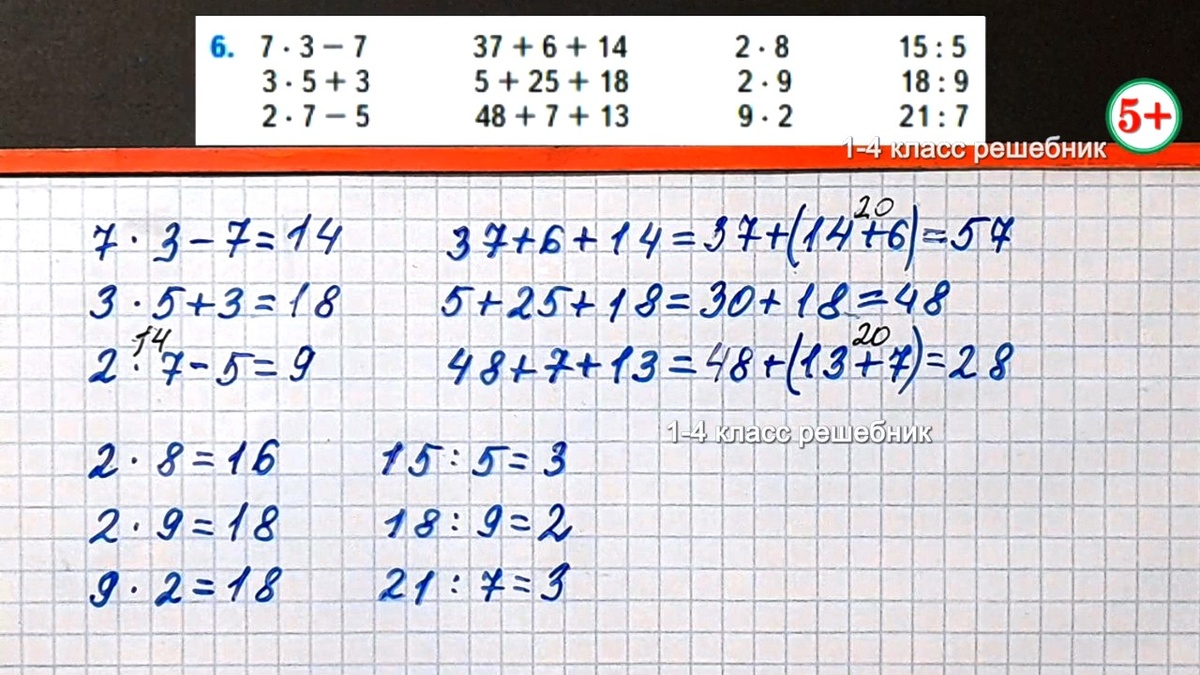 6. 7 · 3 − 7 37 + 6 + 14 2 · 8 15 : 5
3 · 5 + 3 5 + 25 + 18 2 · 9 18 : 9
2 · 7 − 5 48 + 7 + 13 9 · 2 21 : 7
5+
1-4 класс решебник
20
7 · 3 − 7 = 14 37 + 6 + 14 = 37 + (14 + 6) = 57
3 · 5 + 3 = 18 5 + 25 + 18 = 30 + 18 = 48
14 20
2 · 7 − 5 = 9 48 + 7 + 13 = 48 + (13 + 7) = 28
1-4 класс решебник
2 · 8 = 16 15 : 5 = 3
2 · 9 = 18 18 : 9 = 2
9 · 2 = 18 21 : 7 = 3